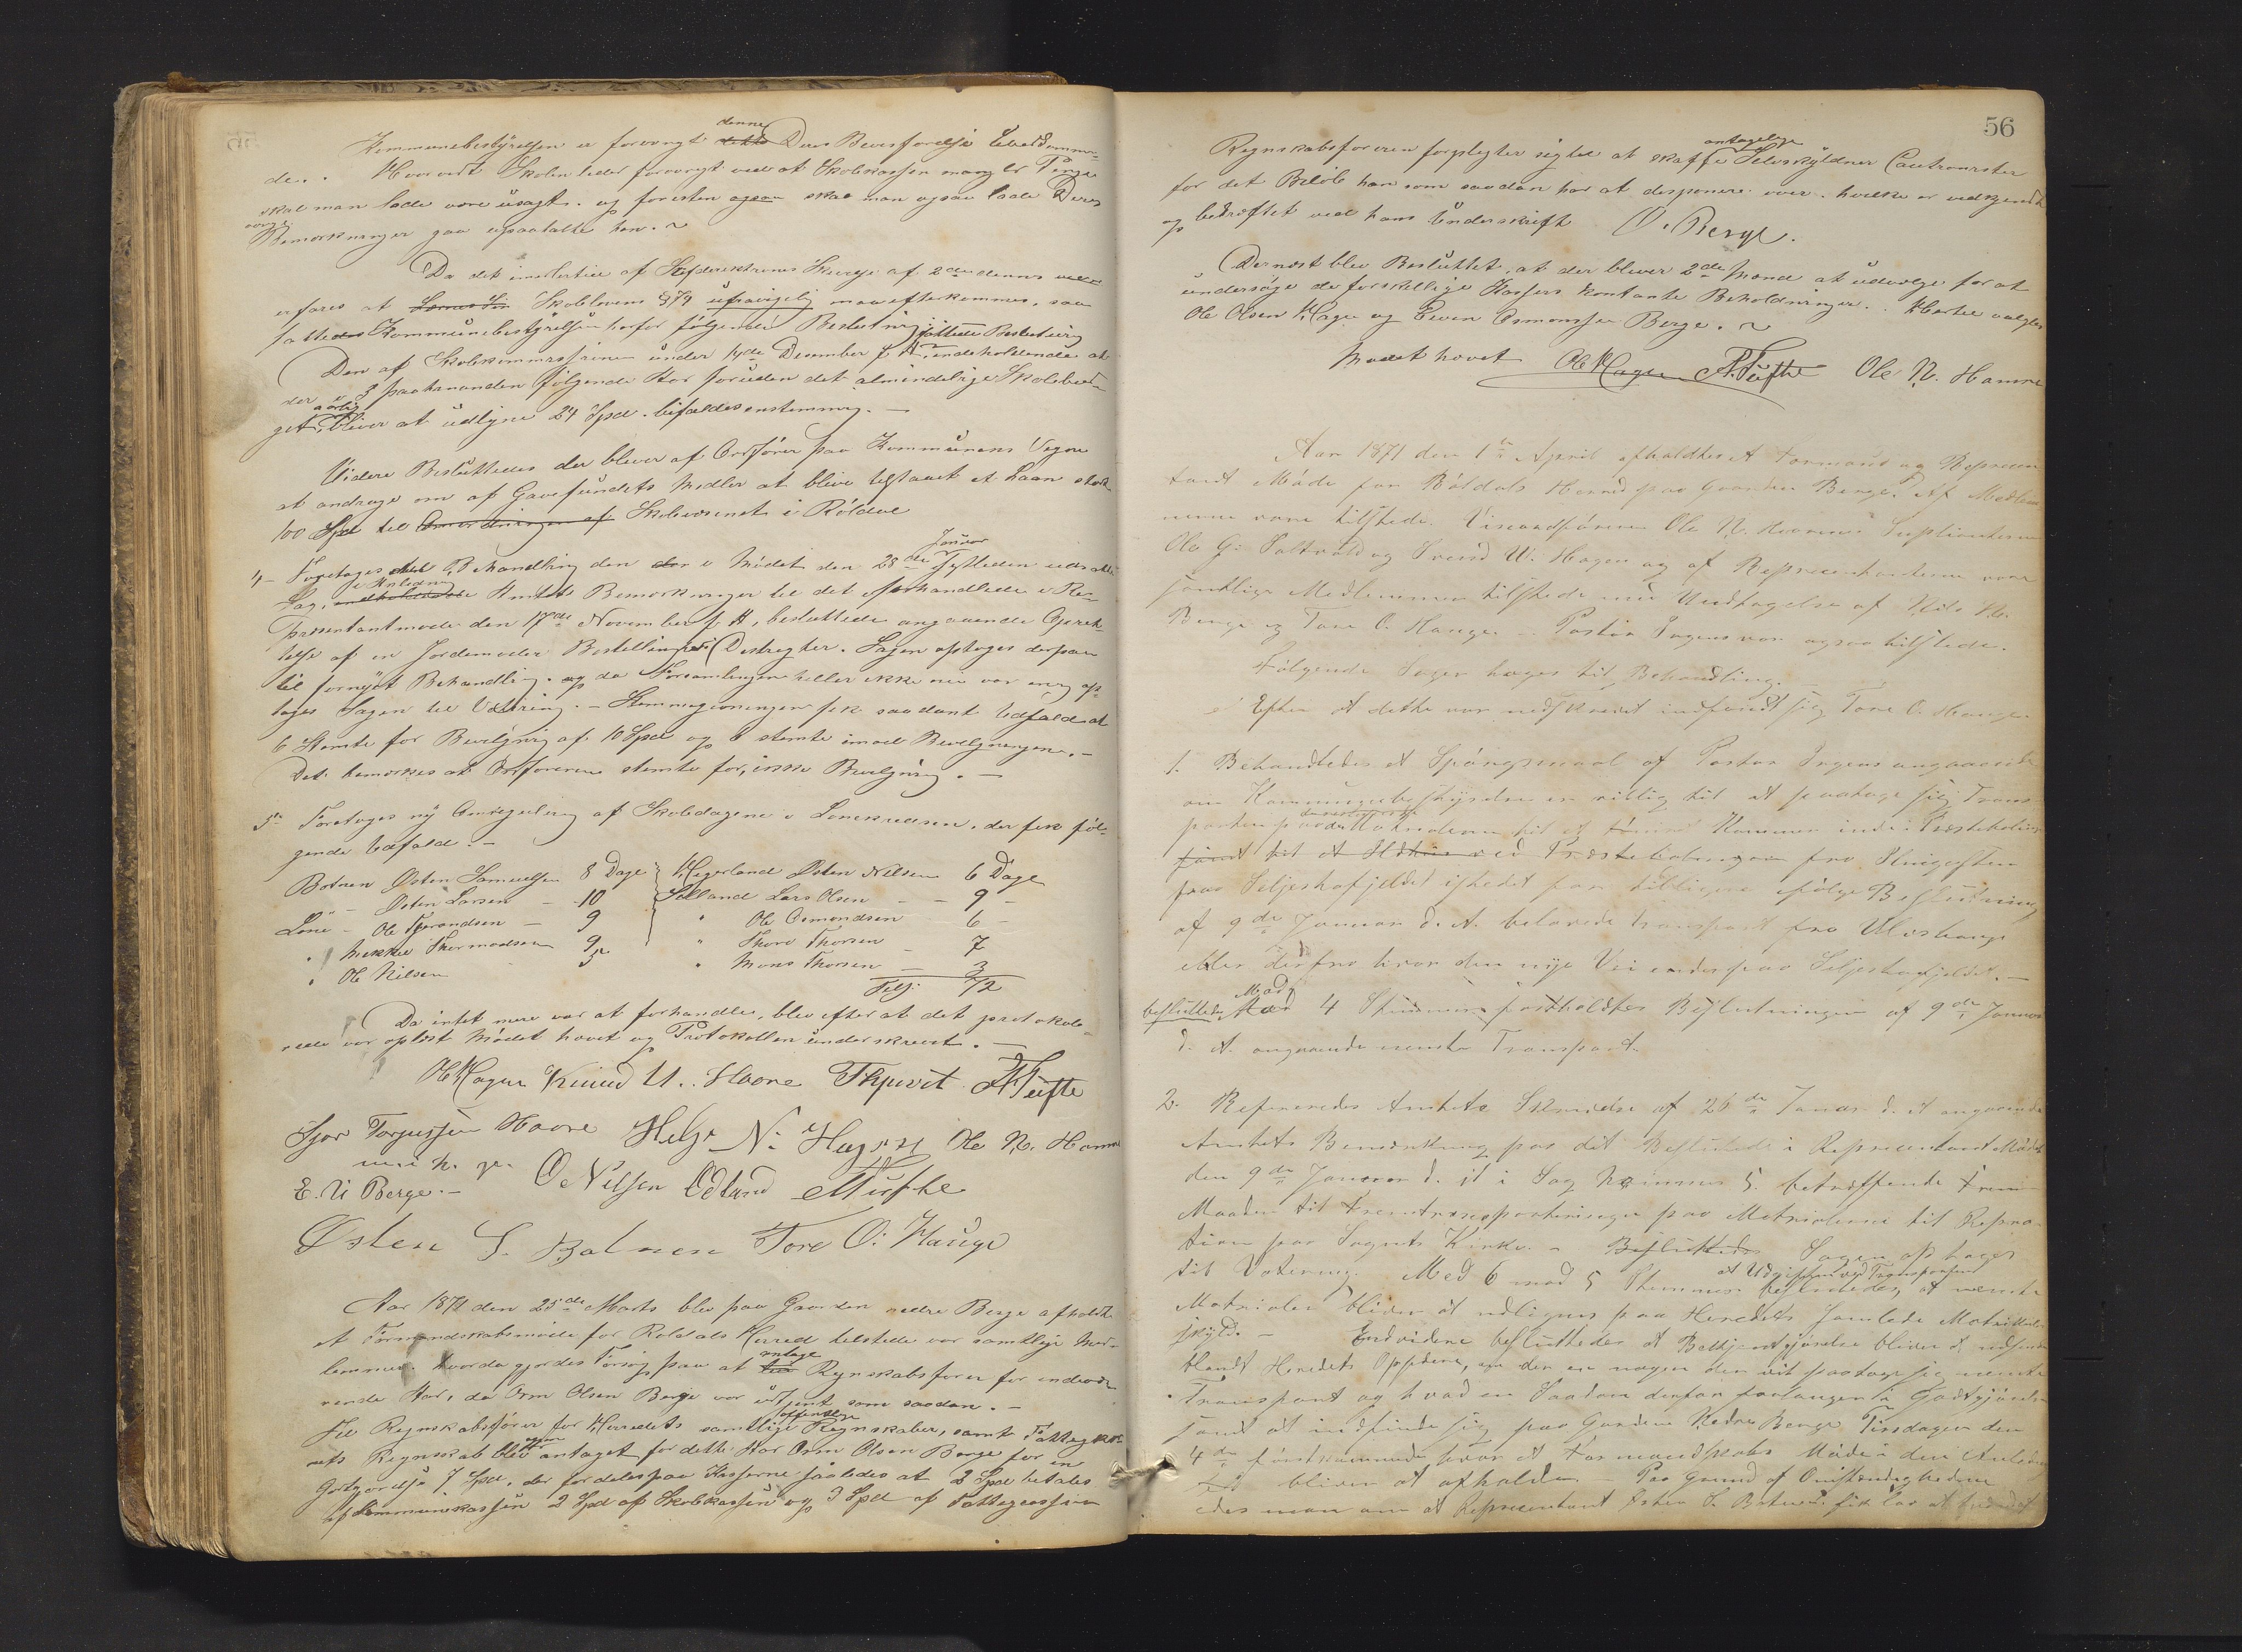 Kommunebestyrelsen er forvongt denne Deres Bevisførelse
de. Hvorvidt Skolen lider forvongt ved at Skolekassen mangler Penge
skal man lade være usagt. og foresten skal man ogsaa lade Deres
øvrige Bemærkninger gaa upaatalte hen.
Da det imidlertid af Stiftsdirektionens Skrivelse af 2den dennes
erfares at Skolelovens § 79 ufravigelig maa efterkommes, saa
fattede Kommunebestyrelsen herfor følgende Beslutning
Den af Skolekommissionen under 14de Desember f. A. fattede Beslutning indeholdende at
der i 3 paa hinanden følgende Aar foruden det almindelige Skolebud-
get aarlig bliver at udligne 24 Spd. bifaldes enstemmig. —
Videre Besluttedes der bliver af Ordfører paa Kommunens Vegne
at andrage om af Gavefundets Midler at blive tilstaaet et Laan stort
100 Spd til Skolevæsenet i Røldal
4 – Foretoges Behandling den i Mødet den 28de Januar udsatte
Sag, i Anledning Amtets Bemærkninger til det forhandlede i Re-
præsentantmøde den 17de November f. A., besluttede angaaende Opret-
telse af en Jordemoder Bestilling i Destrigter. Sagen optoges derpaa
til fornyet Behandling. og da Forsamlingen heller ikke nu var enig op-
toges Sagen til Votering. – Stemmegivningen fik saadant Udfald at
6 Stemte for Bevilgning af 10 Spd og 6 stemte imod Bevilgningen. –
Det bemærkes at Ordføreren stemte for, ikke Bevilgning. –
5te Foretoges ny Omregulering af Skoledagene i Lonekredsen. der fik føl-
gende Udfald. –
Botnen Østen Samuelsen 8 Dage Hegerland Østen Nilsen 6 Dage
" – Østen Larsen – 10 Selland Lars Olsen – – 9 –
Lone – Ole Tjerandsen – 9 " Ole Osmondsen – 6 –
" Mikkel Thormodsen 9 " Thore Thorsen – 7
" Ole Nilsen 5 " Mons Thorsen – 3
Tils. 72
Da intet mere var at forhandle, blev efter at det protokole-
rede var oplæst Mødet hævet og Protokollen underskrevet. –
O Hagen Knud U. Haare A Tufte
Sjur Torgussen Haare Helge N. Hagen Ole N. Hamre
m. i. h. p.
E. U Berge. – O Nilsen Odland
Østen S. Botnen Tore O. Hauge
Aar 1871 den 25de Marts blev paa Gaarden nedre Berge afholdt
et Formandskabsmøde for Røldals Herred tilstede var samtlige Med-
lemmer. Hvorda gjordes Forsøg paa at antage Regnskabsfører for indevæ-
rende Aar, da Orm Olsen Berge var udtjent som saadan. –
Til Regnskabsfører for Herredets samtlige offentlige Regnskaber, samt Fattigkas-
sens Regnskab blev igjen antaget for dette Aar Orm Olsen Berge for en
Godtgjørelse 7 Spd. der fordeles paa Kasserne saaledes at 2 Spd betales
af Kommunekassen 2 Spd af Skolekassen og 3 Spd af Fattigcassen
56
Regnskabsføreren forpligter sig til at skaffe antagelige Selvskyldner Cautionister
for det Beløb han som saadan har at disponere over. hvilke er vedkjendt
og bekræftet ved hans Underskrift O. Berge.
Dernæst blev Besluttet, at der bliver 2de Mænd at udvælge for at
undersøge de forskellige Kassers kontante Beholdninger. Hertil valgtes
Ole Olsen Hagen og Even Osmonsen Berge.
Mødet hævet O Hagen A. Tufte Ole N. Hamre
Aar 1871 den 1te April afholdtes et Formands og Repræsen-
tant Møde for Røldals Herred paa Gaarden Berge. Af Medlem-
merne vare tilstede. Viceordføreren Ole N. Hamre Suplianterne
Ole G. Saltvold og Svend U. Hagen og af Repræsentanterne vare
samtlige Medlemmer tilstede med Undtagelse af Nils H.
Berge og Tore O. Hauge – Pastor Ingens var ogsaa tilstede.
Følgende Sager toges til Behandling. –
Efter at dette var nedskrevet indfandt sig Tore O. Hauge.
1. Behandledes et Spørgsmaal af Pastor Ingens angaaende
om Kommunebestyrelsen er villig til at paatage sig Trans-
porten paa Matrialerne til et Kammer inde i Præsteboligen
fra
paa Seljestafjeldet istedet for tidligere ifølge Beslutning
af 9de Januar d. A. belovede transport fra
eller derfra hvor den nye Vei ender paa Seljestafjeldet. –
besluttedes Mod 4 Stemmer fastholdtes Beslutningen af 9de Januar
d. A. angaaende nævnte Transport.
2. Refereredes Amtets Skrivelse af 26de Januar d. A angaaende
Amtets Bemærkning paa det Besluttede i Repræsentant Mødet
den 9de Januar d. A i Sag Nummer 5. betræffende
Maaden til Fremtransporteringen paa Matrialerne til Repara-
tion paa Sognets Kirke. – Besluttedes Sagen optages
til Votering. Med 6 mod 5 Stemmer besluttedes, at Udgifterne ved Transporten af nævnte
Matrialer bliver at udlignes paa Herredets samlede Matrikul-
skyld. – Endvidere besluttedes at Bekjendtgjørelse bliver at udstede
blandt Herredets Opsidere, om der er nogen der vil paatage sig nævnte
Transport og hvad en Saadan derfor forlanger i Godtgjørelse
samt at indfinde sig paa Gaarden Nedre Berge Tirsdagen den
4de førstkommende hvor et Formandskabs Møde i den Anledning
bliver at afholde. – Paa Grund af Omstændighederne
edes man om at Repræsentant Østen S. Botnen fik lov at